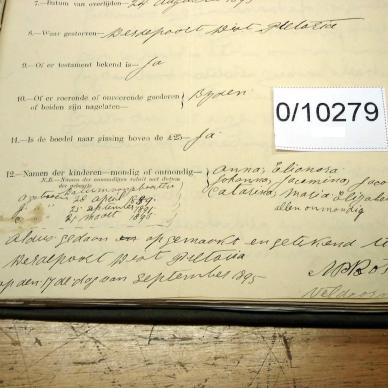 7.—Datum van overlijden— 24 Augustus 1895
8.—Waar gestorven— Derdepoort Dist Pretoria
9.—Of er testament bekend is— Ja
10.—Of er roerende of onroerende goederen of beiden zijn nagelaten— Byden
0/10279
11.—Is de boedel naar gissing boven de £25— Ja
12.—Namen der kinderen—mondig of onmondig— Anna, Elionora,
N.B.—Namen der onmondigen voluit met datum der geboorte Johanna, Jacomina, Jaco
Catarina, Maria Elizabe
28 April 1889 allen onmondig
25 September 1891
21 Maart 1895
Aldus gedaan opgemaakt en geteekend te
Derdepoort Dist Pretoria
op den 17de dag van September 1895